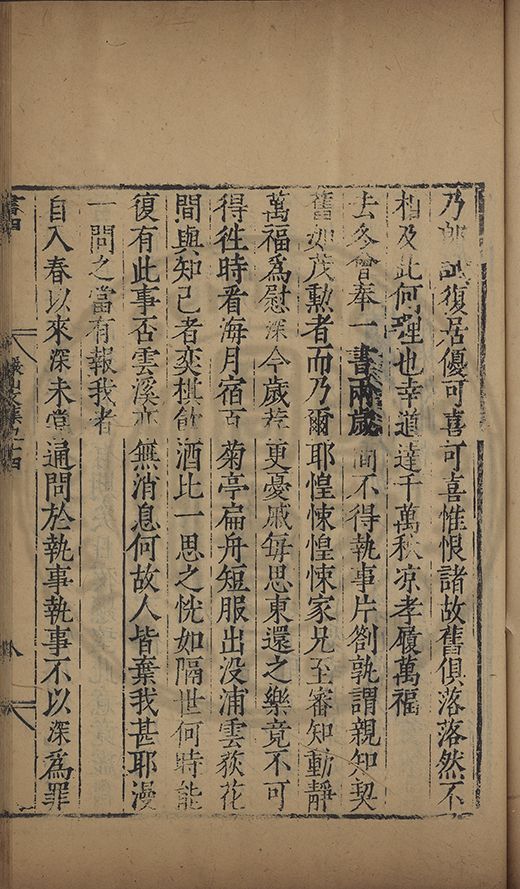 乃郎試復居優可喜可喜惟恨諸故舊俱落落然不
相及此何理也幸道達千萬秋凉孝履萬福
去冬曾奉一書兩歲間不得執事片劄孰謂親知契
舊如茂勲者而乃爾耶惶悚惶悚家兄至審知動靜
萬福爲慰深今歲荐更憂戚每思東還之樂竟不可
得徃時看海月宿百菊亭扁舟短服出没浦雲荻花
間與知己者奕棋飲酒比一思之恍如隔世何時能
復有此事否雲溪亦無消息何故人皆棄我甚耶漫
一問之當有報我者
自入春以來深未嘗通問於執事執事不以深爲罪
書四
集之十四